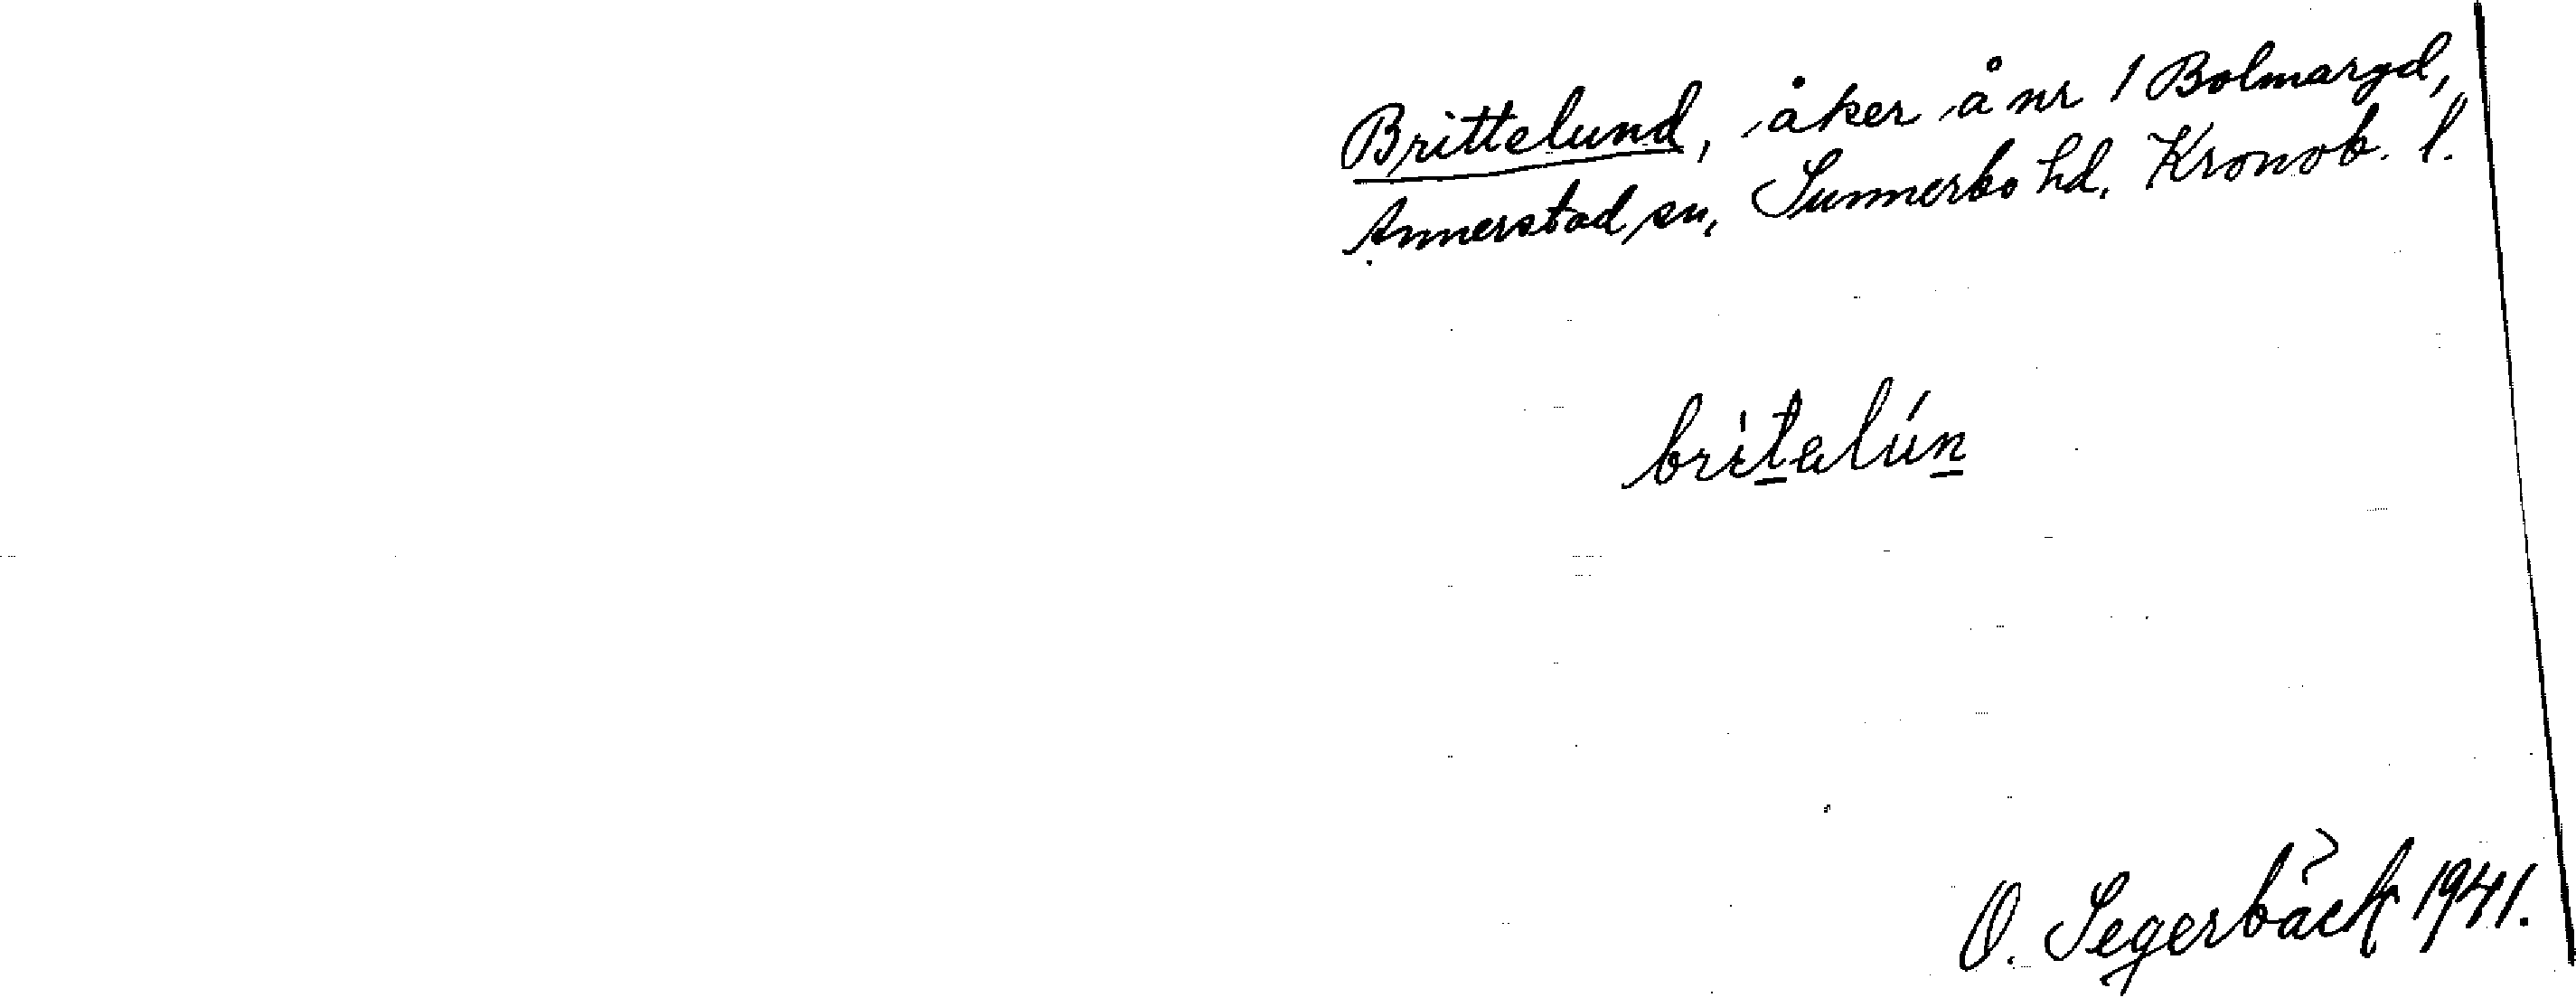 Brittelund, åker å nr 1 Bolmaryd,
Annerstad sn, Sunnerbo hd, Kronob. l.
britelún
O. Segerbäck 1941.